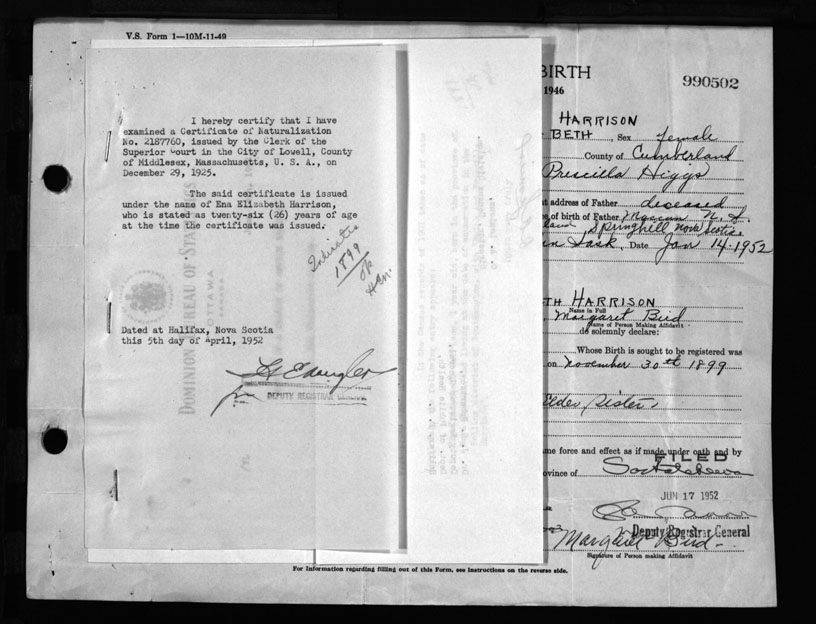 V.S. Form 1—10M-11-49
I hereby certify that I have
examined a Certificate of Naturalization
No. 2187760, issued by the Clerk of the
Superior Court in the City of Lowell, County
of Middlesex, Massachusetts, U. S. A., on
December 29, 1925.
The said certificate is issued
under the name of Ena Elizabeth Harrison,
who is stated as twenty-six (26) years of age
at the time the certificate was issued.
Indicates
1899
OK
Dated at Halifax, Nova Scotia
this 5th day of April, 1952
for
DEPUTY REGISTRAR GENERAL
DOMINION BUREAU OF STATISTICS
OTTAWA
CANADA
BIRTH
1946
990502
HARRISON
BETH, Sex female
County of Cumberland
Priscilla Higgs
address of Father deceased
of birth of Father Maccan N. S.
Springhill Nova Scotia
Sask. Date Jan 14-1952
TH HARRISON
Name in Full
Margaret Bird
Name of Person Making Affidavit
do solemnly declare:
Whose Birth is sought to be registered was
on November 30th 1899
Elder Sister
me force and effect as if made under oath and by
FILED
ovince of Saskatchewan
JUN 17 1952
Deputy Registrar General
Margaret Bird
Signature of Person making Affidavit
For Information regarding filling out of this Form, see instructions on the reverse side.